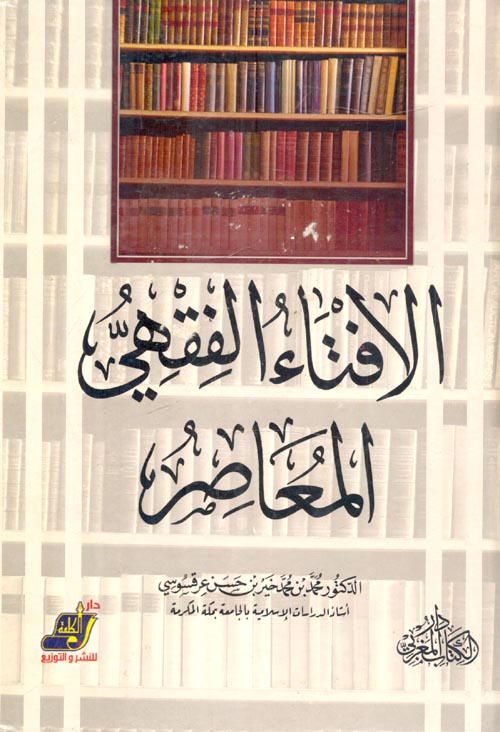 الإفتاء الفقهي
المعاصر
الدكتور محمد بن محمد خير بن حسن عرقسوسي
أستاذ الدراسات الإسلامية بالجامعة بمكة المكرمة
دار
الكلمة
للنشر والتوزيع
دار
الكتاب المغربي